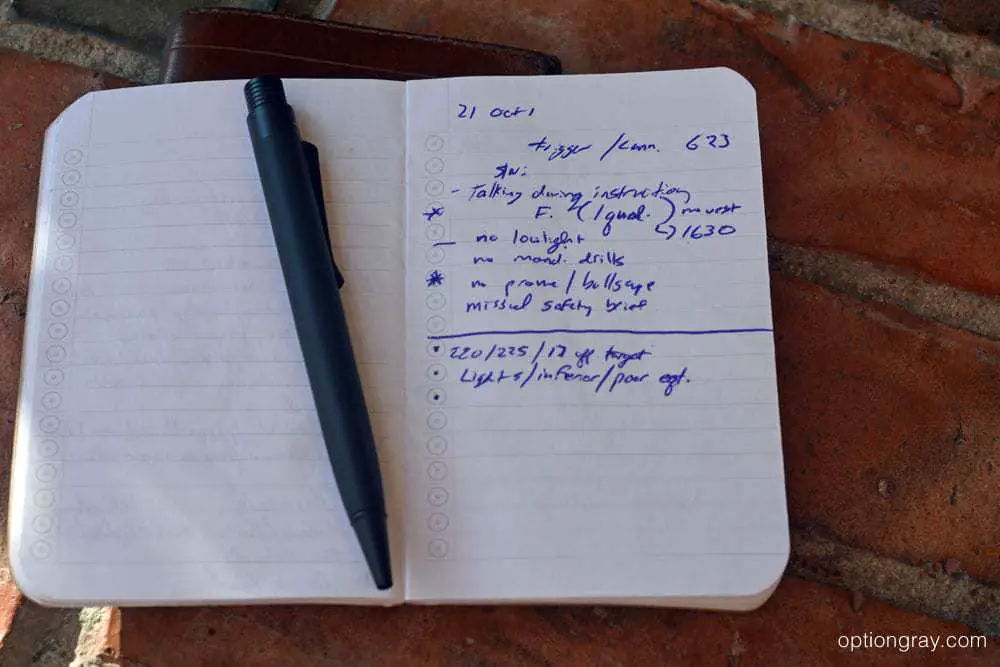 21 Oct
trigger / 623
- Talking during instruction
* F. (1 qual.)
1630
— no lowlight
no mand. drills
* no prone /
missed safety brief
• 220/225/17 off target
• Lights/inferior/poor eqt.
•
optiongray.com